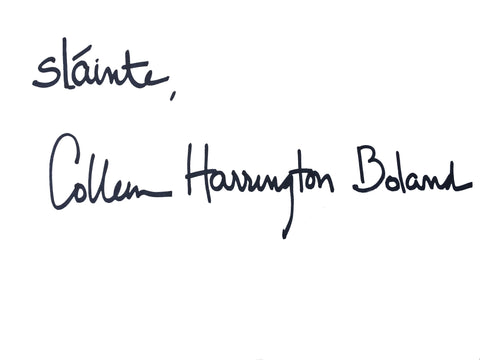 Sláinte,
Colleen Harrington Boland